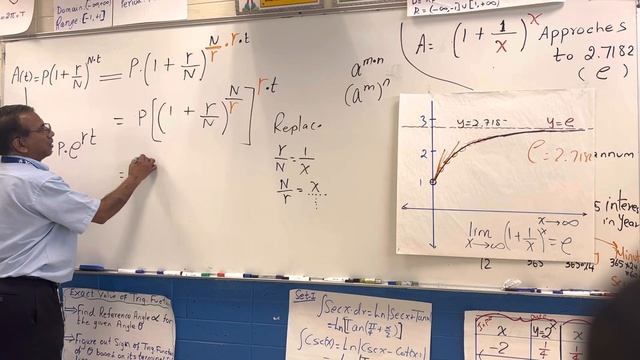 Domain (-∞,∞)
Range: [-1,1]
R = (-∞,-1] ∪ [1,+∞)
A(t) = P(1 + r/N)^N·t = P·(1 + r/N)^N/r·r·t
= P[(1 + r/N)^N/r]^r·t
P·e^rt
=
a^m·n
(a^m)^n
Replace
r/N = 1/x
N/r = x
A = (1 + 1/x)^x Approches
to 2.7182
(e)
3
y=2.718
y=e
2
e=2.7182
1
x→∞
lim x→∞ (1 + 1/x)^x = e
annum
interes
in
year
12
365
365×24
Exact Value of Trig. Func
⇒ Find Reference Angle α for
the given Angle θ
⇒ Figure out Sign of Trig Func
of θ based on its termin
Set-I
∫Sec x dx = Ln|Sec x + tan x
= Ln|tan(π/4 + x/2)|
∫Csc(x) = Ln|Csc x - Cot(x)|
x
y=2^x
x
-2
1/4